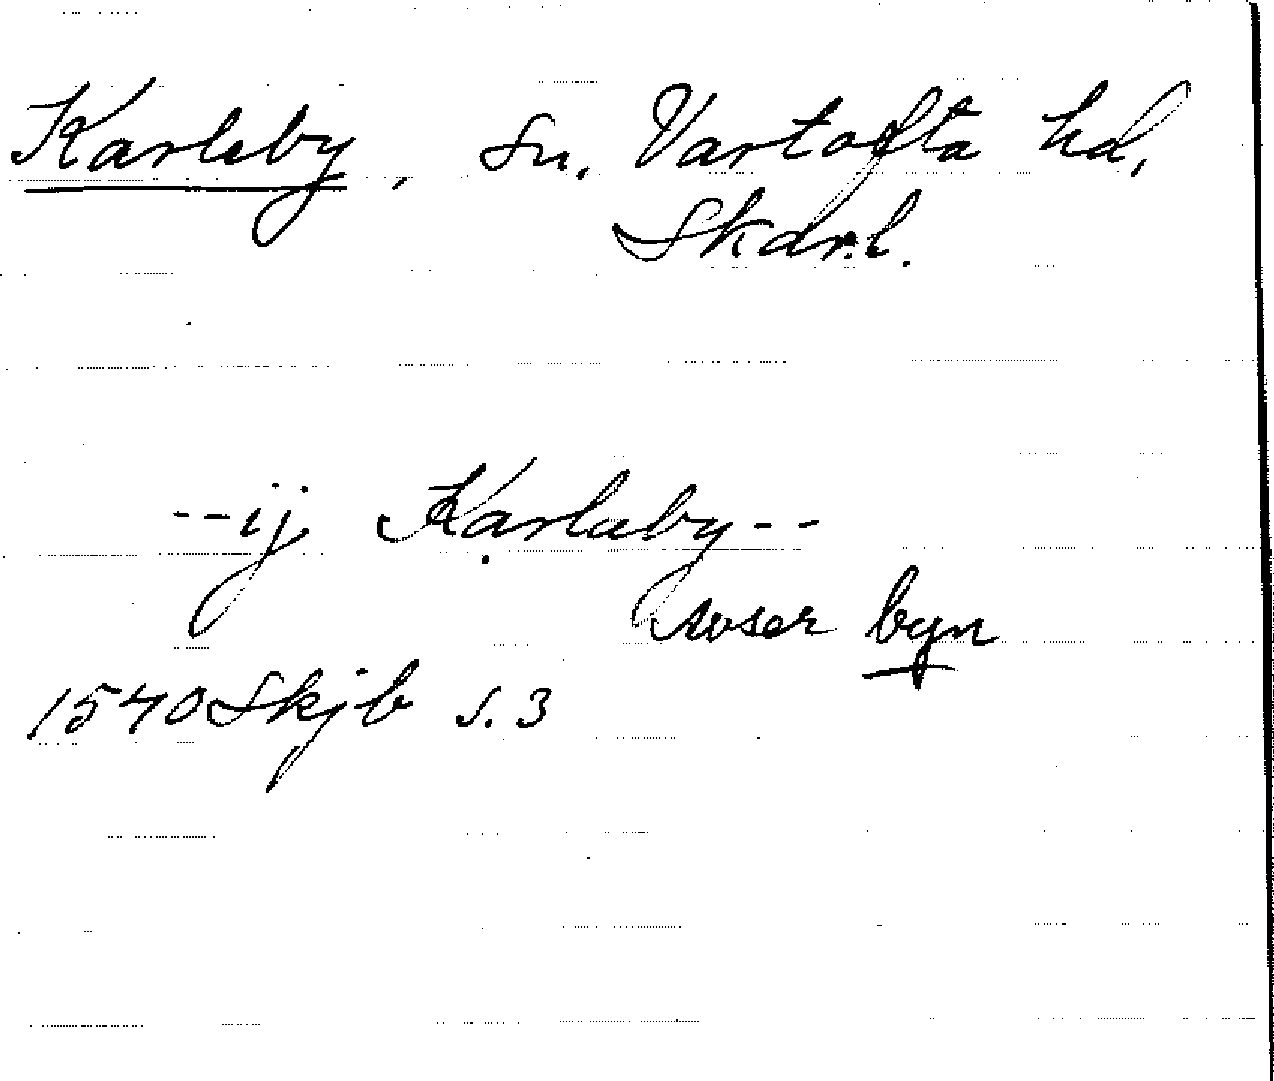 Karleby, sn, Vartofta hd,
Skar.l.
--ij Karlaby--
avser byn
1540 Skjb s. 3